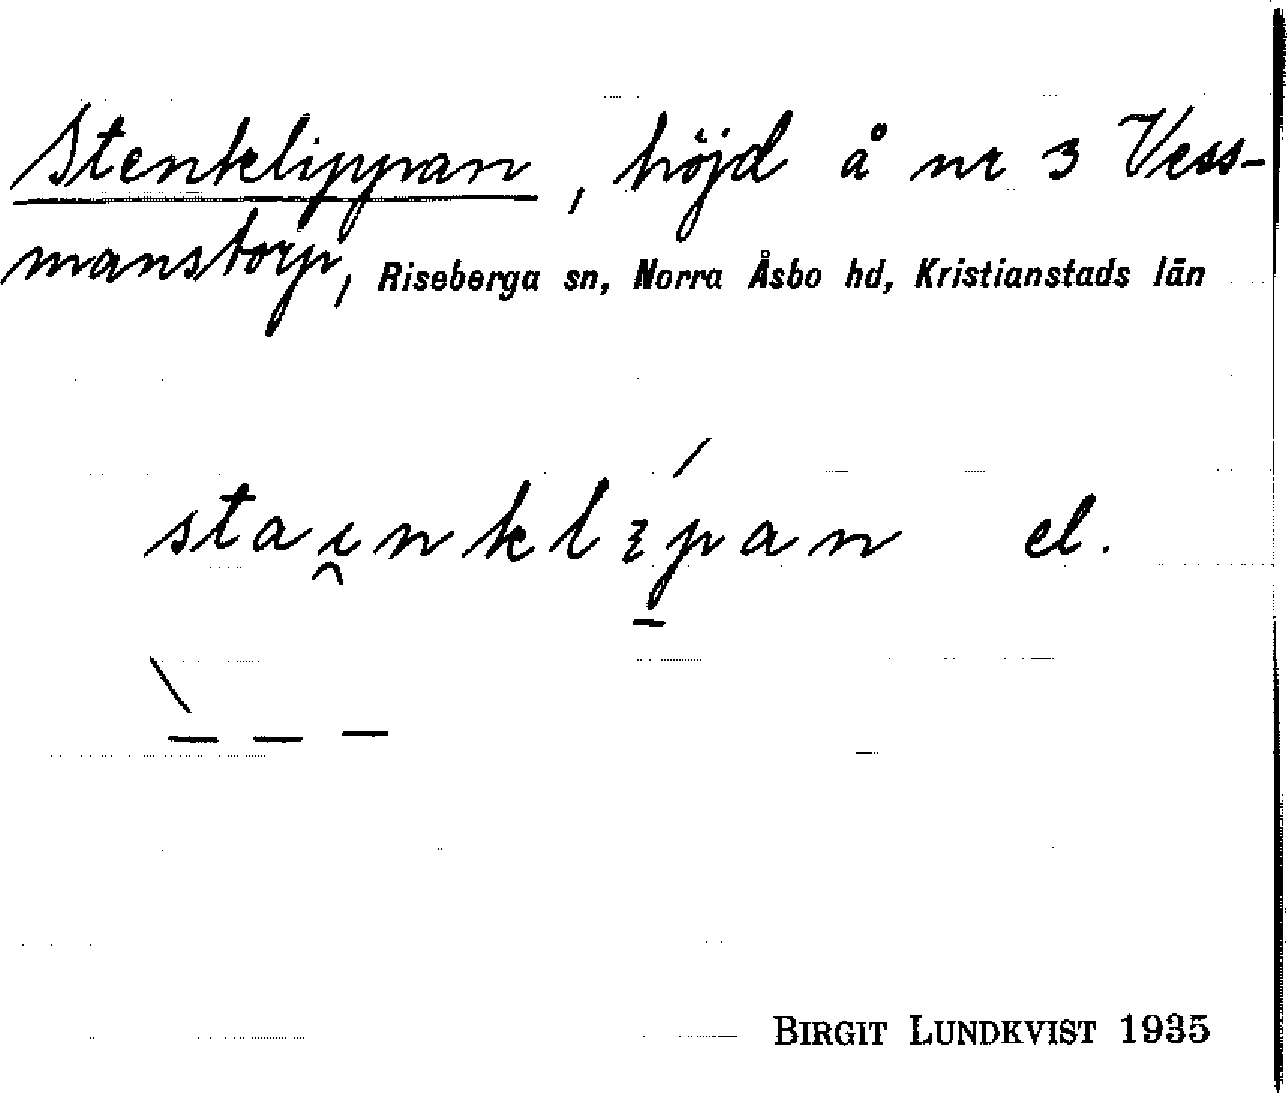 Stenklippan, höjd å nr 3 Vess-
manstorp, Riseberga sn, Norra Åsbo hd, Kristianstads län
el.
BIRGIT LUNDKVIST 1935